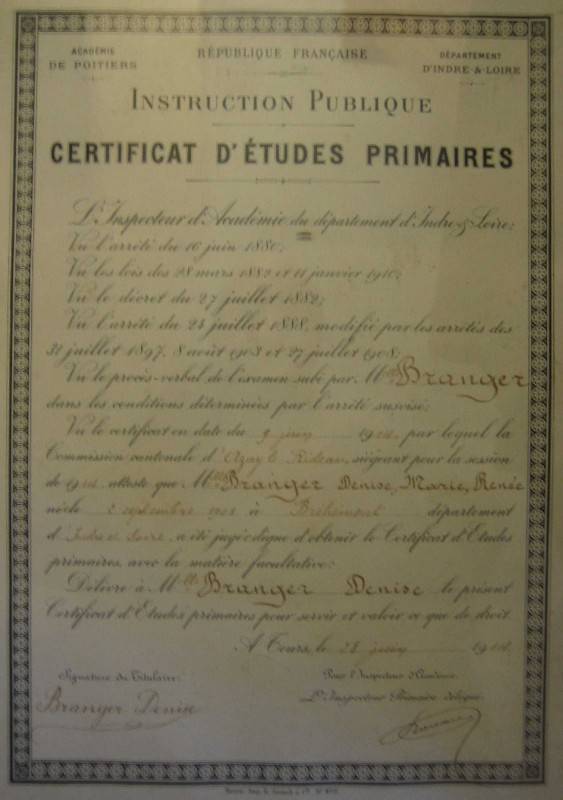 ACADÉMIE
DE POITIERS
RÉPUBLIQUE FRANÇAISE
DÉPARTEMENT
D'INDRE-&-LOIRE
INSTRUCTION PUBLIQUE
CERTIFICAT D'ÉTUDES PRIMAIRES
L'Inspecteur d'Académie du département d'Indre & Loire;
Vu l'arrêté du 16 juin 1880;
Vu les lois des 28 mars 1882 et 11 janvier 1910;
Vu le décret du 27 juillet 1882;
Vu l'arrêté du 24 juillet 1888, modifié par les arrêtés des
31 juillet 1897, 8 août 1903 et 27 juillet 1908;
Vu le procès-verbal de l'examen subi par Mlle Branger
dans les conditions déterminées par l'arrêté susvisé;
Vu le certificat en date du juin 19 par lequel la
Commission cantonale d'Azay le Rideau, siégeant pour la session
de 19 atteste que Mlle Branger Denise, Marie, Renée
né'e le 2 septembre à Bréhémont département
d'Indre et Loire, a été jugé digne d'obtenir le Certificat d'Études
primaires, avec la matière facultative:
Délivré à Mlle Branger Denise le présent
Certificat d'Études primaires pour servir et valoir ce que de droit.
A Tours, le juin 19
Signature du Titulaire:
Branger Denise
Pour l'Inspecteur d'Académie:
L'Inspecteur Primaire délégué